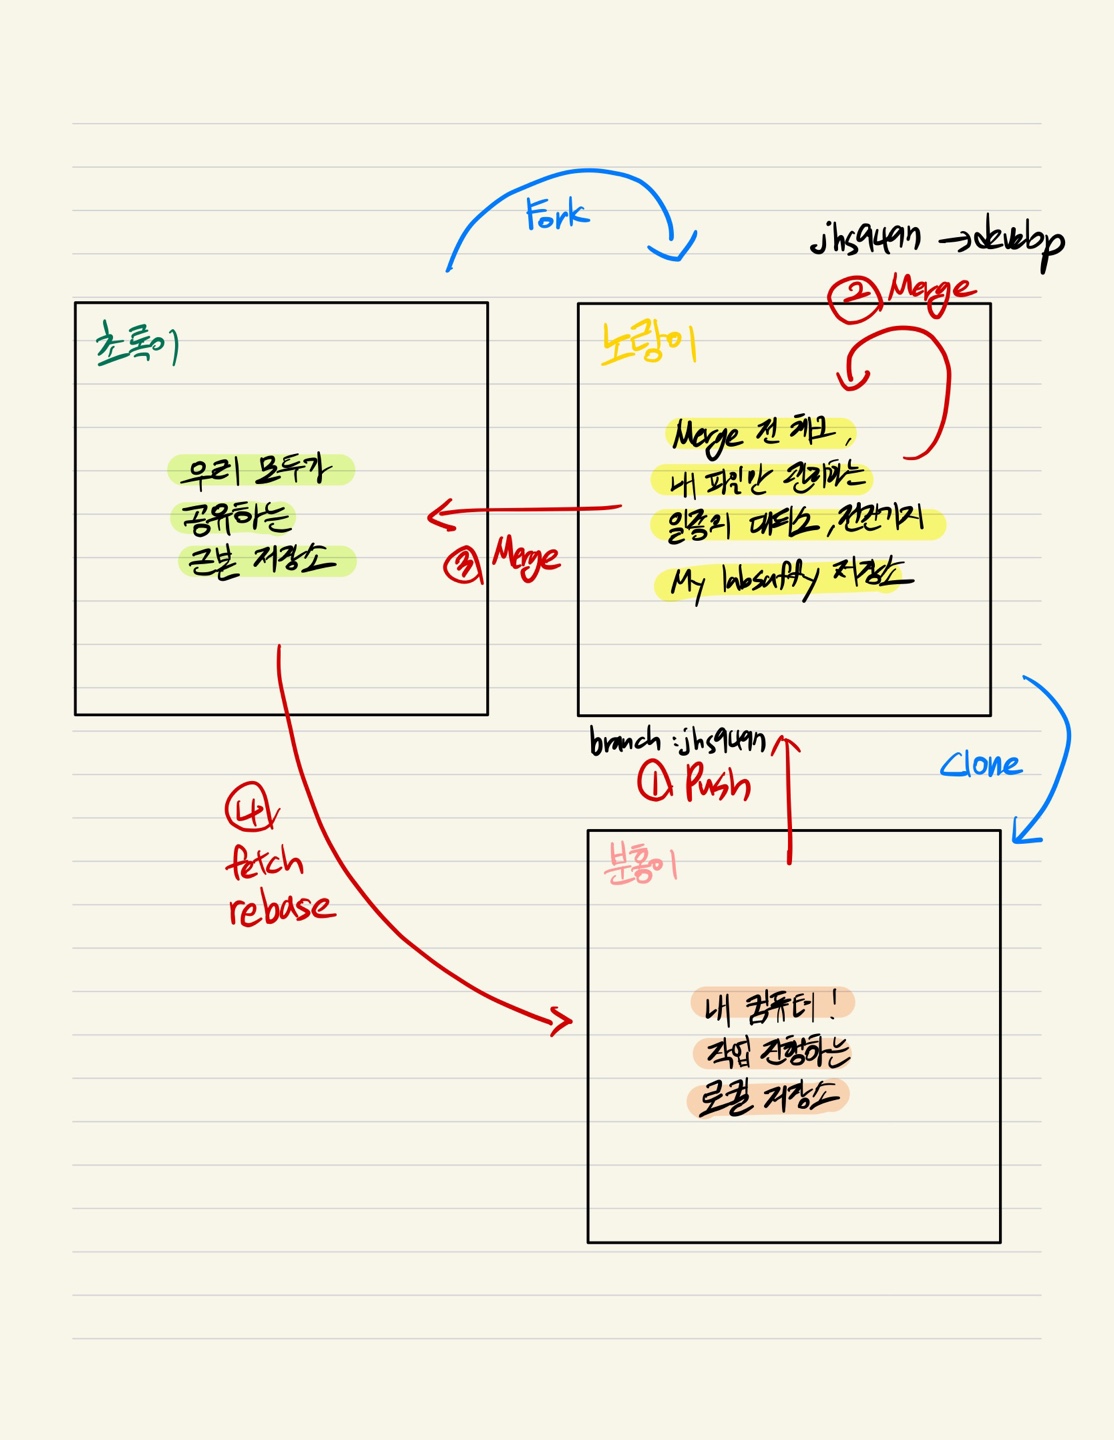 Fork
jhs949n → develop
② Merge
초록이
우리 모두가
공유하는
근본 저장소
노랑이
Merge 전 체크,
내 파일만 관리하는
일종의 대피소, 전진기지
My labsaffy 저장소
③ Merge
branch : jhs949n
① Push
Clone
④
fetch
rebase
분홍이
내 컴퓨터!
작업 진행하는
로컬 저장소